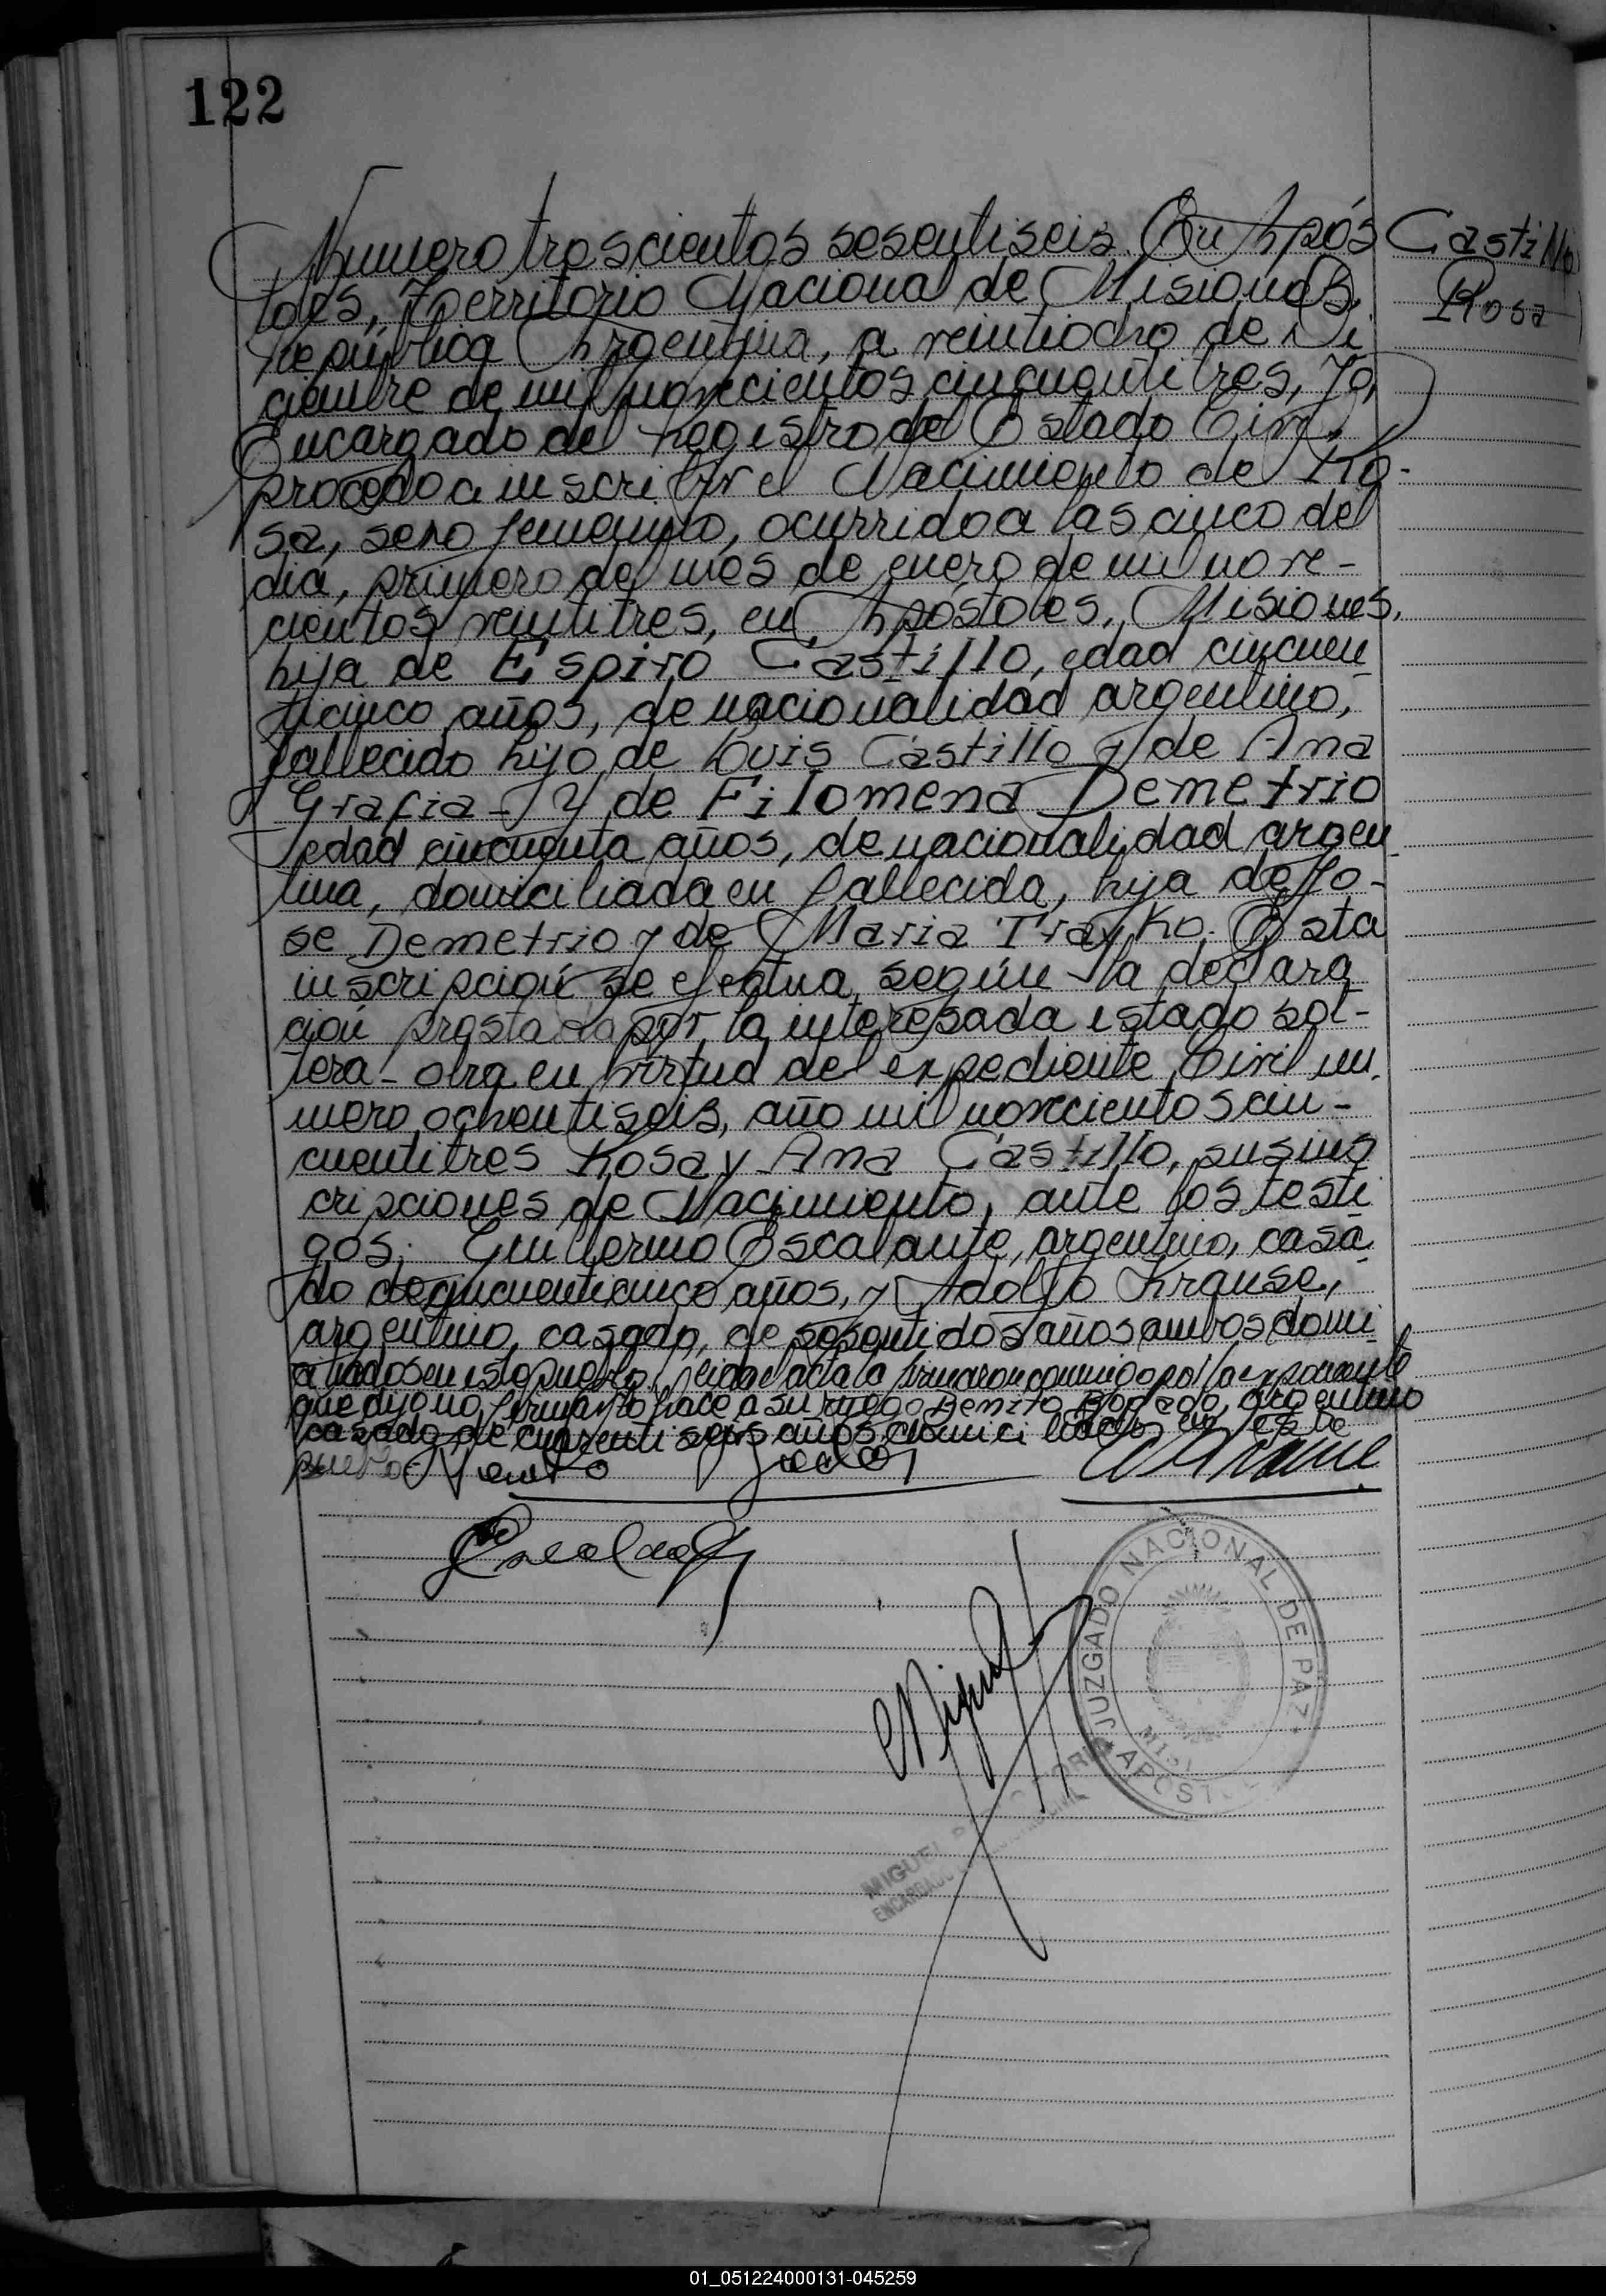 122
Numero trescientos sesentiseis. En Após
Castillo
Rosa
toles, Territorio Nacional de Misiones,
República Argentina, a veintiocho de Di
ciembre de mil novecientos cincuentitres, Yo,
Encargado del Registro del Estado Civil,
procedo a inscribir el Nacimiento de Ro-
sa, sexo femenino, ocurrido a las cinco del
dia, primero del mes de enero de mil nove-
cientos veintitres, en Apóstoles, Misiones,
hija de Espiro Castillo, edad cincuen
ticinco años, de nacionalidad argentino,
fallecido hijo de Luis Castillo y de Ana
Grafia - Y de Filomena Demetrio
edad cincuenta años, de nacionalidad argen
tina, domiciliada en fallecida, hija de Jo-
se Demetrio y de Maria Trayko. Esta
inscripción se efectua según la declara
ción prestada por la interesada estado sol-
tera - obra en virtud del expediente Civil nu
mero ochentiseis, año mil novecientos cin-
cuentitres Rosa y Ana Castillo, sus ins
cripciones de Nacimiento, ante los testi
gos: Guillermo Escalante, argentino, casa
do de cincuenticinco años, y Adolfo Krause,
argentino, casado, de sesentidos años ambos domi
ciliados en este pueblo, leida el acta la firmaron conmigo por la exponente
que dijo no firmar lo hace a su ruego Benito argentino
casado de cuarenti seis años domiciliado en este
pueblo
JUZGADO NACIONAL DE PAZ
APOST
MISI
MIGUEL
ENCARGADO
01_051224000131-045259